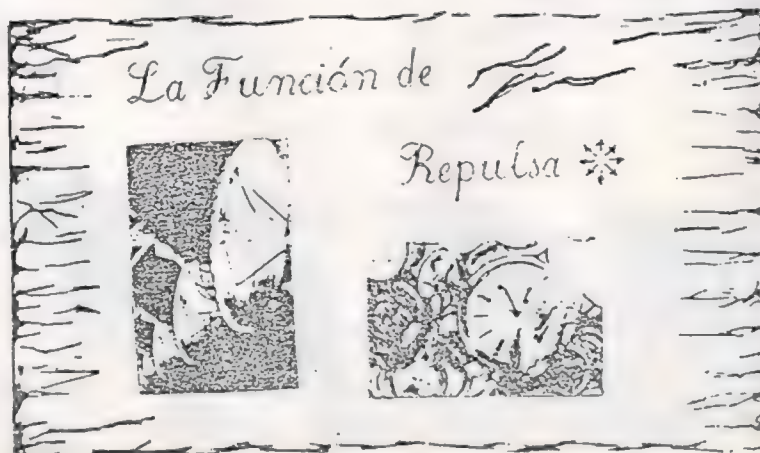 La Función de
Repulsa